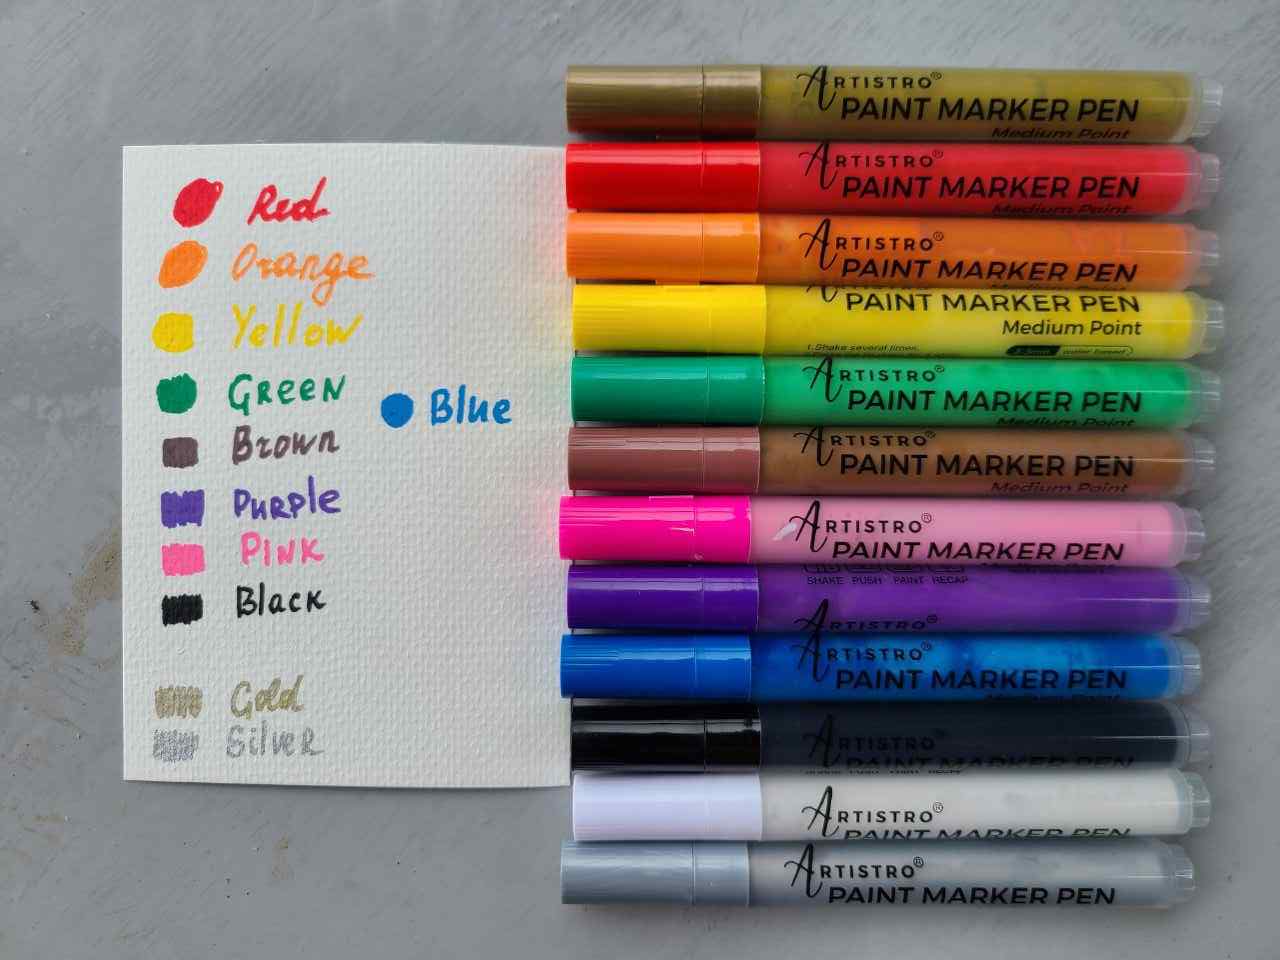 Red
Orange
Yellow
Green
Blue
Brown
Purple
Pink
Black
Gold
Silver
ARTISTRO®
PAINT MARKER PEN
Medium Point
ARTISTRO®
PAINT MARKER PEN
Medium Point
ARTISTRO®
PAINT MARKER PEN
Medium Point
PAINT MARKER PEN
Medium Point
1.Shake several times.
water based
ARTISTRO®
PAINT MARKER PEN
Medium Point
ARTISTRO®
PAINT MARKER PEN
Medium Point
ARTISTRO®
PAINT MARKER PEN
SHAKE PUSH PAINT RECAP
ARTISTRO®
ARTISTRO®
PAINT MARKER PEN
Medium Point
ARTISTRO®
PAINT MARKER PEN
ARTISTRO®
PAINT MARKER PEN
ARTISTRO®
PAINT MARKER PEN